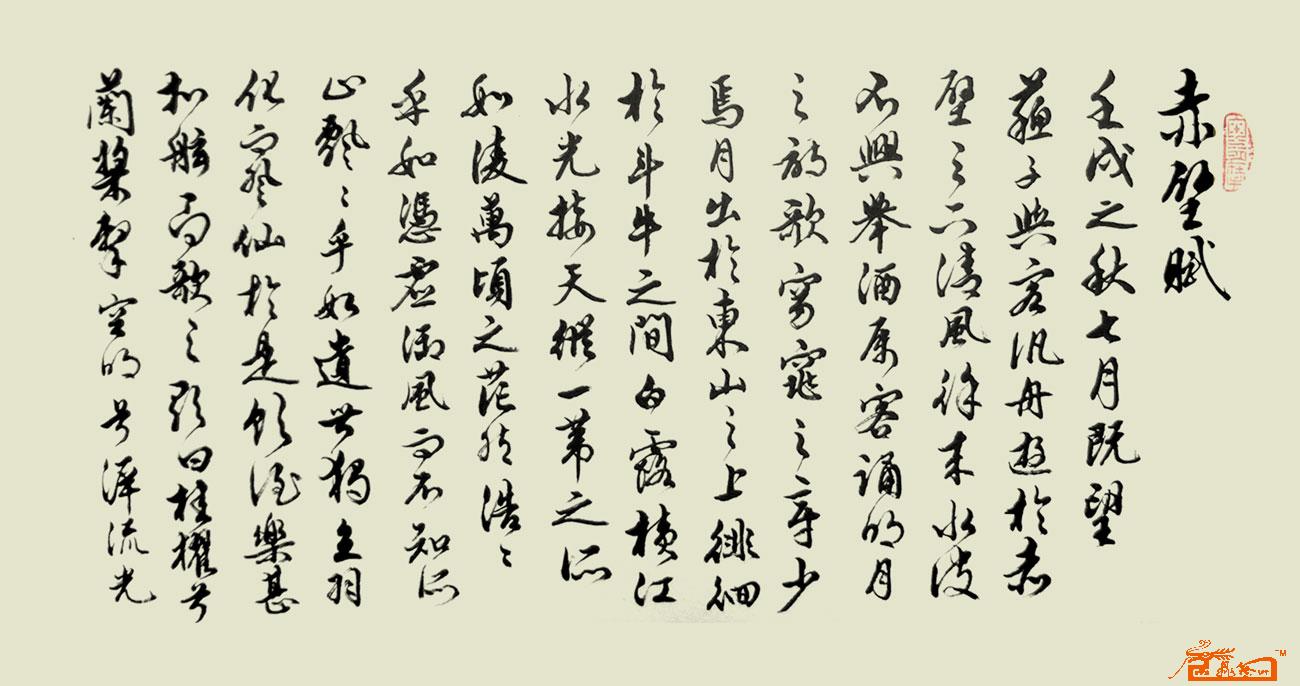 赤壁賦
壬戌之秋七月既望
蘇子與客汎舟遊於赤
壁之下清風徐来水波
不興舉酒属客誦明月
之詩歌窈窕之章少
焉月出於東山之上徘徊
於斗牛之間白露横江
水光接天縱一葦之所
如凌萬頃之茫然浩〻
乎如憑虚御風而不知所
止飄〻乎如遺世獨立羽
化而登仙於是飲酒樂甚
扣舷而歌之歌曰桂櫂兮
蘭槳擊空明兮泝流光